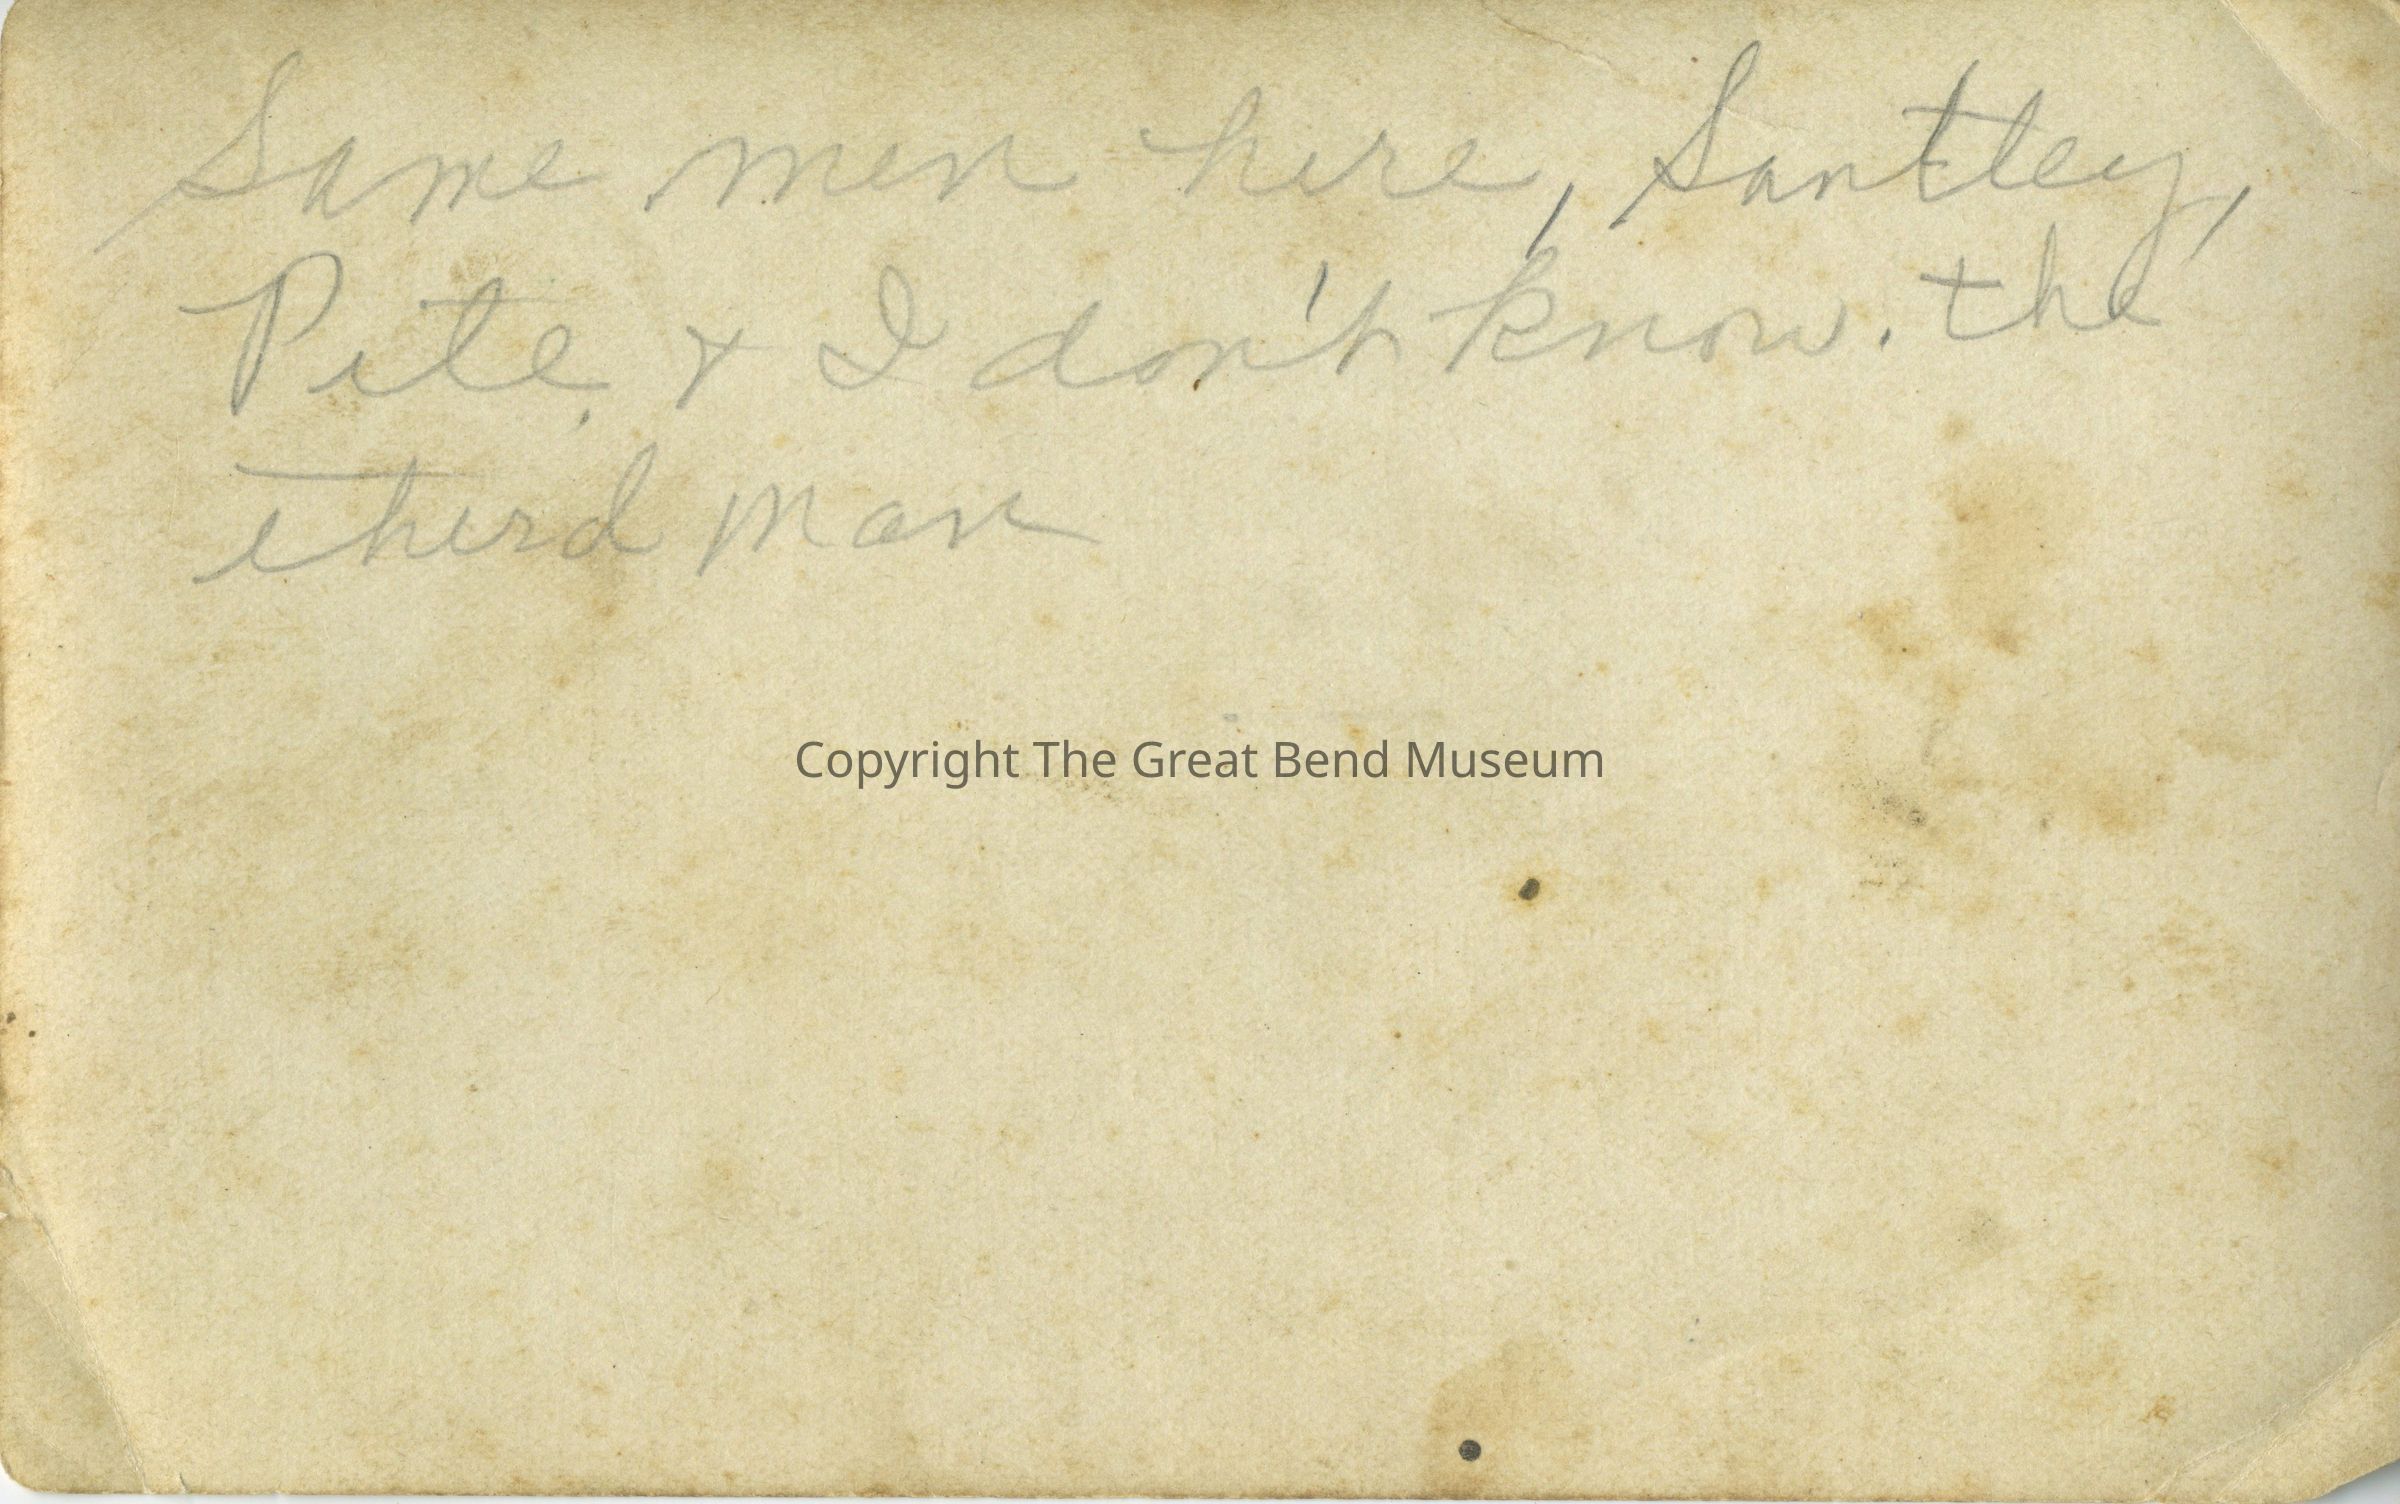 Same men here, Santley,
Pete & I don't know. the
third man
Copyright The Great Bend Museum